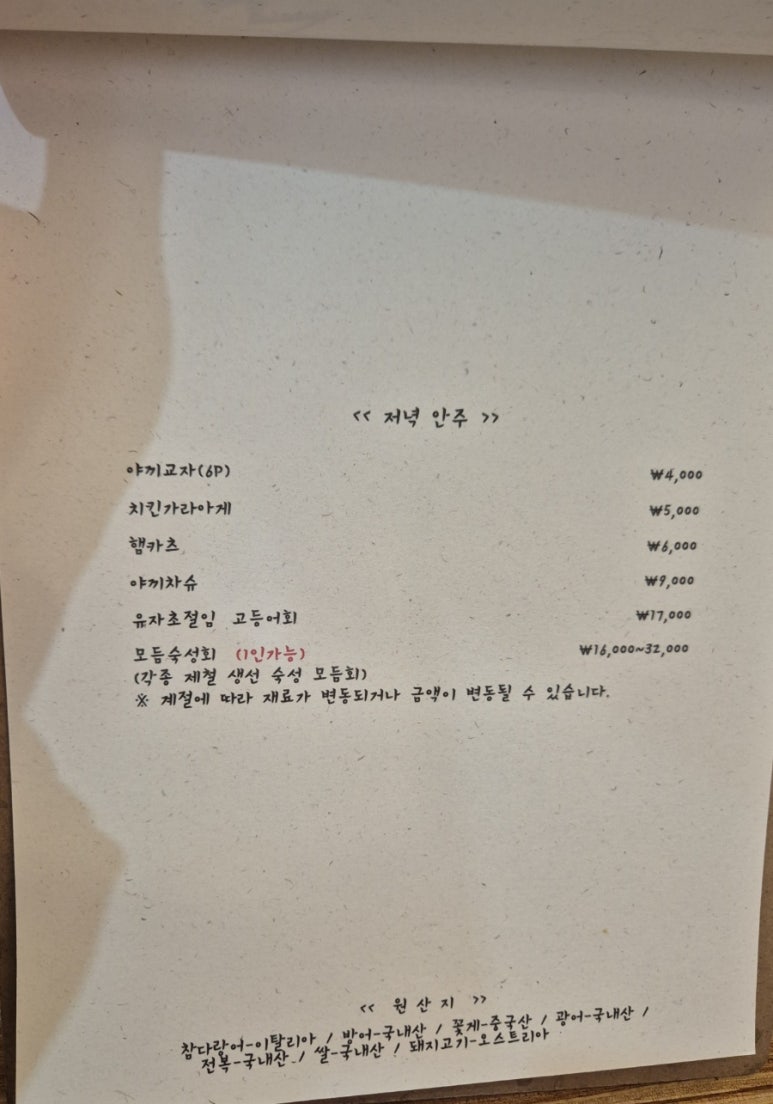 << 저녁 안주 >>
야끼교자(6P) ₩4,000
치킨가라아게 ₩5,000
햄카츠 ₩6,000
야끼차슈 ₩9,000
유자초절임 고등어회 ₩17,000
모듬숙성회 (1인가능) ₩16,000~32,000
(각종 제철 생선 숙성 모듬회)
※ 계절에 따라 재료가 변동되거나 금액이 변동될 수 있습니다.
<< 원산지 >>
참다랑어-이탈리아 / 방어-국내산 / 꽃게-중국산 / 광어-국내산 /
전복-국내산 / 쌀-국내산 / 돼지고기-오스트리아